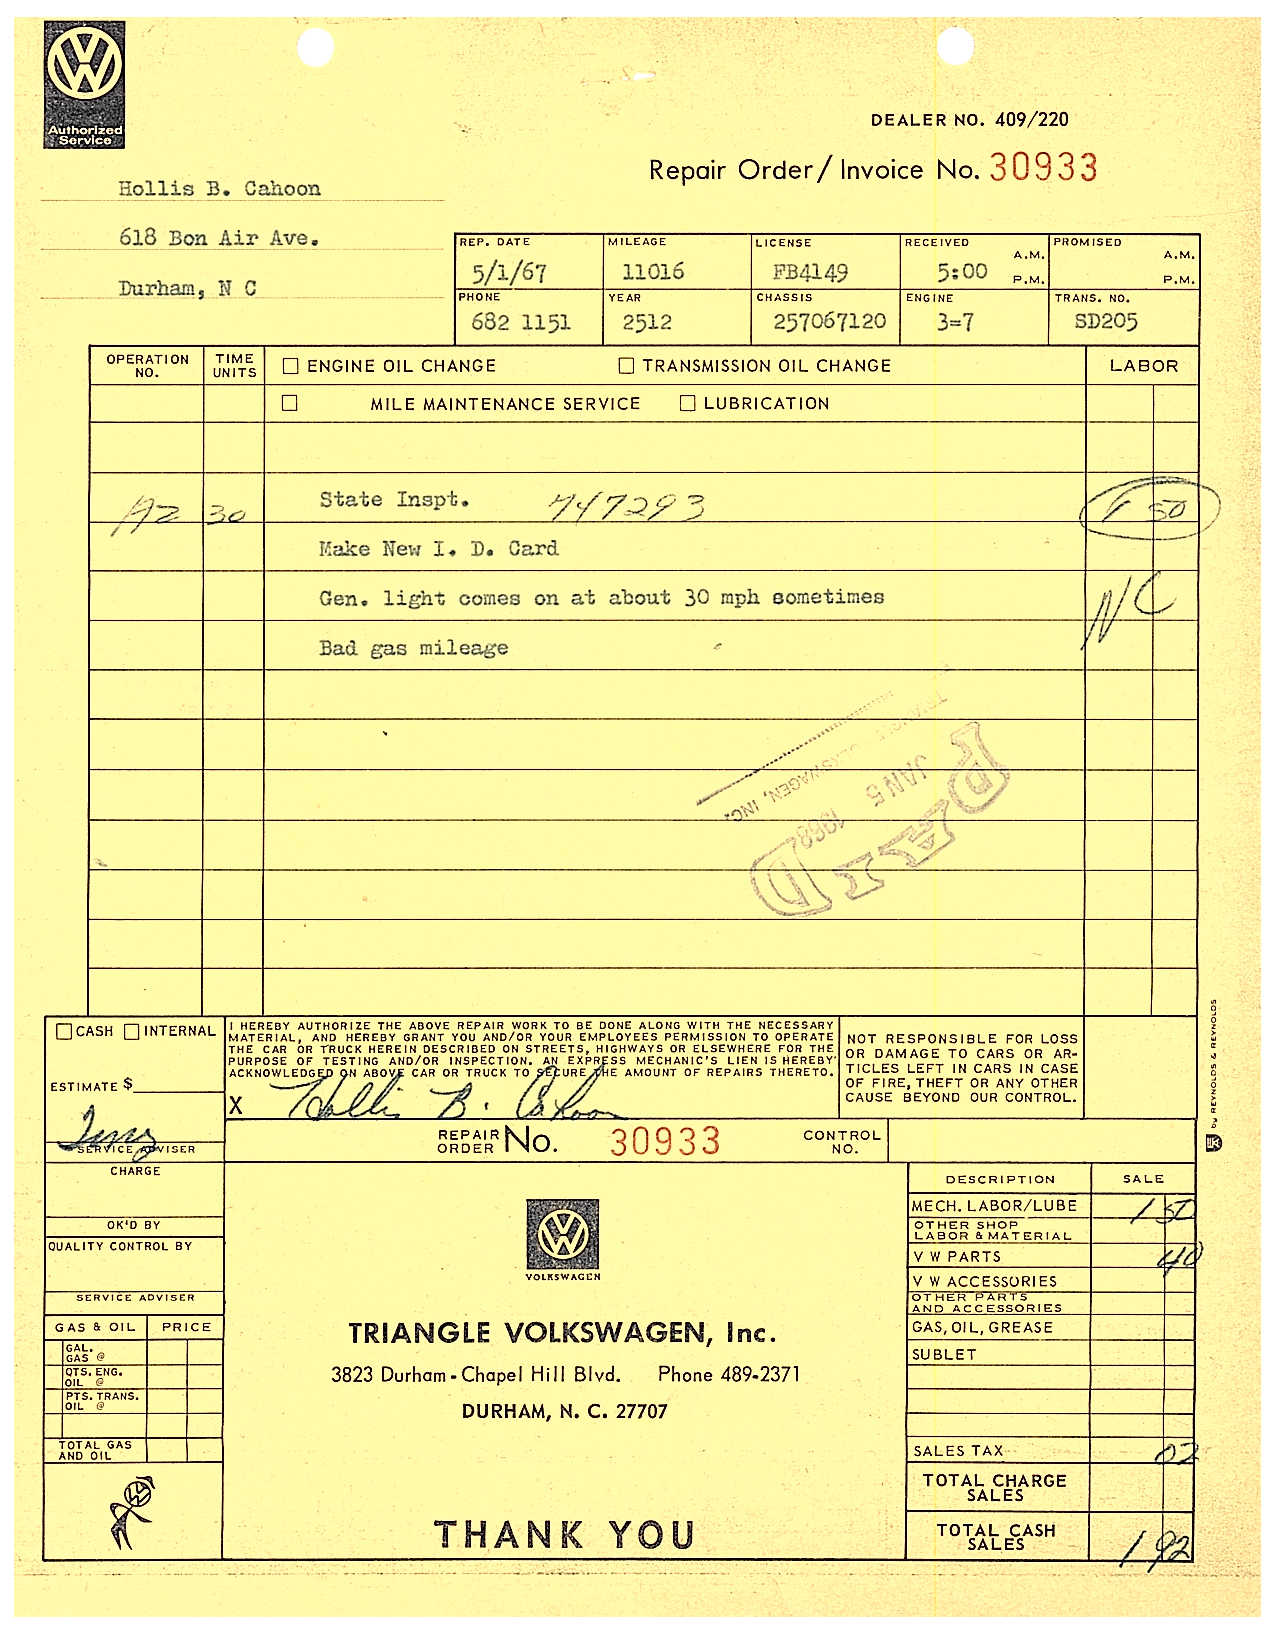 Authorized
Service
DEALER NO. 409/220
Repair Order / Invoice No. 30933
Hollis B. Cahoon
618 Bon Air Ave.
Durham, N C
REP. DATE MILEAGE LICENSE RECEIVED A.M. PROMISED A.M.
5/1/67 11016 FB4149 5:00 P.M. P.M.
PHONE YEAR CHASSIS ENGINE TRANS. NO.
682 1151 2512 257067120 3=7 SD205
OPERATION NO. TIME UNITS ENGINE OIL CHANGE TRANSMISSION OIL CHANGE LABOR
MILE MAINTENANCE SERVICE LUBRICATION
A2 30 State Inspt. 747293 1 50
Make New I. D. Card
Gen. light comes on at about 30 mph sometimes NC
Bad gas mileage
TRIANGLE VOLKSWAGEN, INC.
JAN 5 1968
PAID
CASH INTERNAL
ESTIMATE $
I HEREBY AUTHORIZE THE ABOVE REPAIR WORK TO BE DONE ALONG WITH THE NECESSARY
MATERIAL, AND HEREBY GRANT YOU AND/OR YOUR EMPLOYEES PERMISSION TO OPERATE
THE CAR OR TRUCK HEREIN DESCRIBED ON STREETS, HIGHWAYS OR ELSEWHERE FOR THE
PURPOSE OF TESTING AND/OR INSPECTION. AN EXPRESS MECHANIC'S LIEN IS HEREBY
ACKNOWLEDGED ON ABOVE CAR OR TRUCK TO SECURE THE AMOUNT OF REPAIRS THERETO.
X Hollis B. Cahoon
NOT RESPONSIBLE FOR LOSS
OR DAMAGE TO CARS OR AR-
TICLES LEFT IN CARS IN CASE
OF FIRE, THEFT OR ANY OTHER
CAUSE BEYOND OUR CONTROL.
by REYNOLDS & REYNOLDS
SERVICE ADVISER
REPAIR ORDER No. 30933 CONTROL NO.
CHARGE
OK'D BY
QUALITY CONTROL BY
SERVICE ADVISER
GAS & OIL PRICE
GAL.
GAS @
QTS. ENG.
OIL @
PTS. TRANS.
OIL @
TOTAL GAS
AND OIL
VOLKSWAGEN
TRIANGLE VOLKSWAGEN, Inc.
3823 Durham - Chapel Hill Blvd. Phone 489-2371
DURHAM, N. C. 27707
THANK YOU
DESCRIPTION SALE
MECH. LABOR/LUBE 1 50
OTHER SHOP
LABOR & MATERIAL
V W PARTS 40
V W ACCESSORIES
OTHER PARTS
AND ACCESSORIES
GAS, OIL, GREASE
SUBLET
SALES TAX 02
TOTAL CHARGE
SALES
TOTAL CASH
SALES 1 92